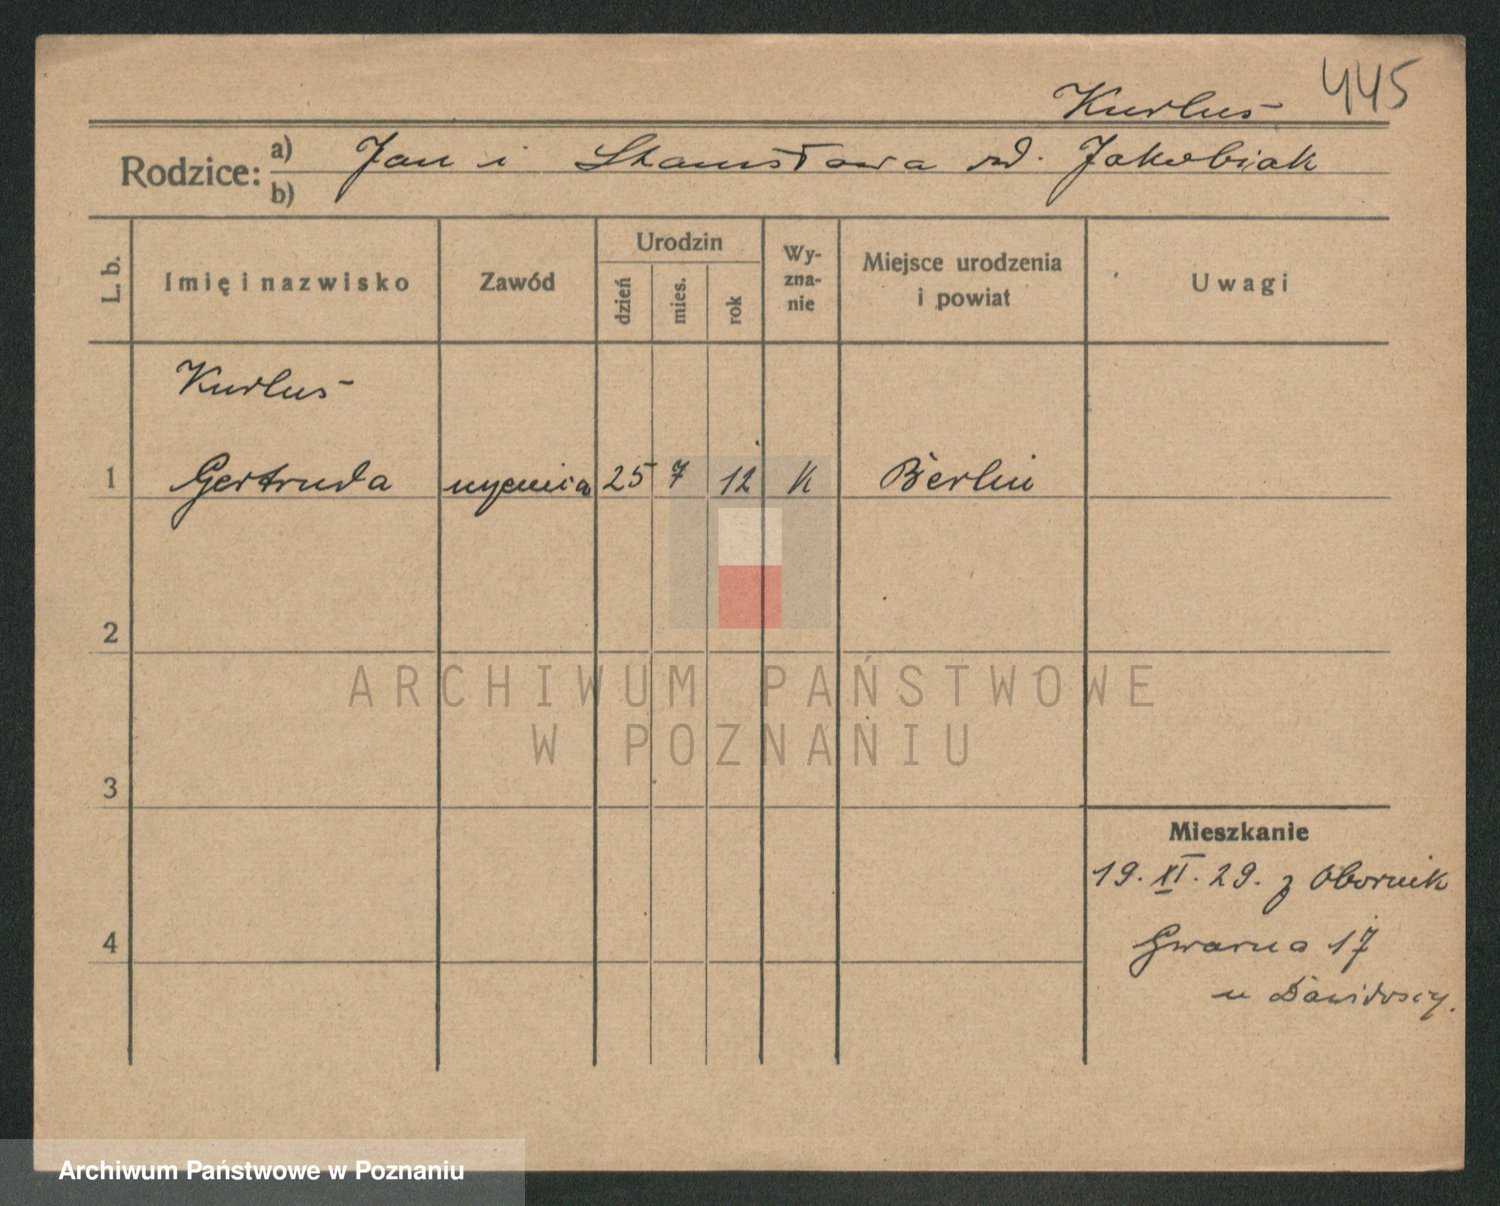 445
Kurluś
Rodzice: a) Jan i Stanisława rd. Jakubiak
b)
L. b.
Imię i nazwisko
Zawód
Urodzin
dzień
mies.
rok
Wy-
zna-
nie
Miejsce urodzenia
i powiat
Uwagi
Kurluś
1 Gertruda 25 7 12 K Berlin
2
3
4
Mieszkanie
19. XI. 29. z Obornik
Gwarna 17
u
ARCHIWUM PAŃSTWOWE
W POZNANIU
Archiwum Państwowe w Poznaniu